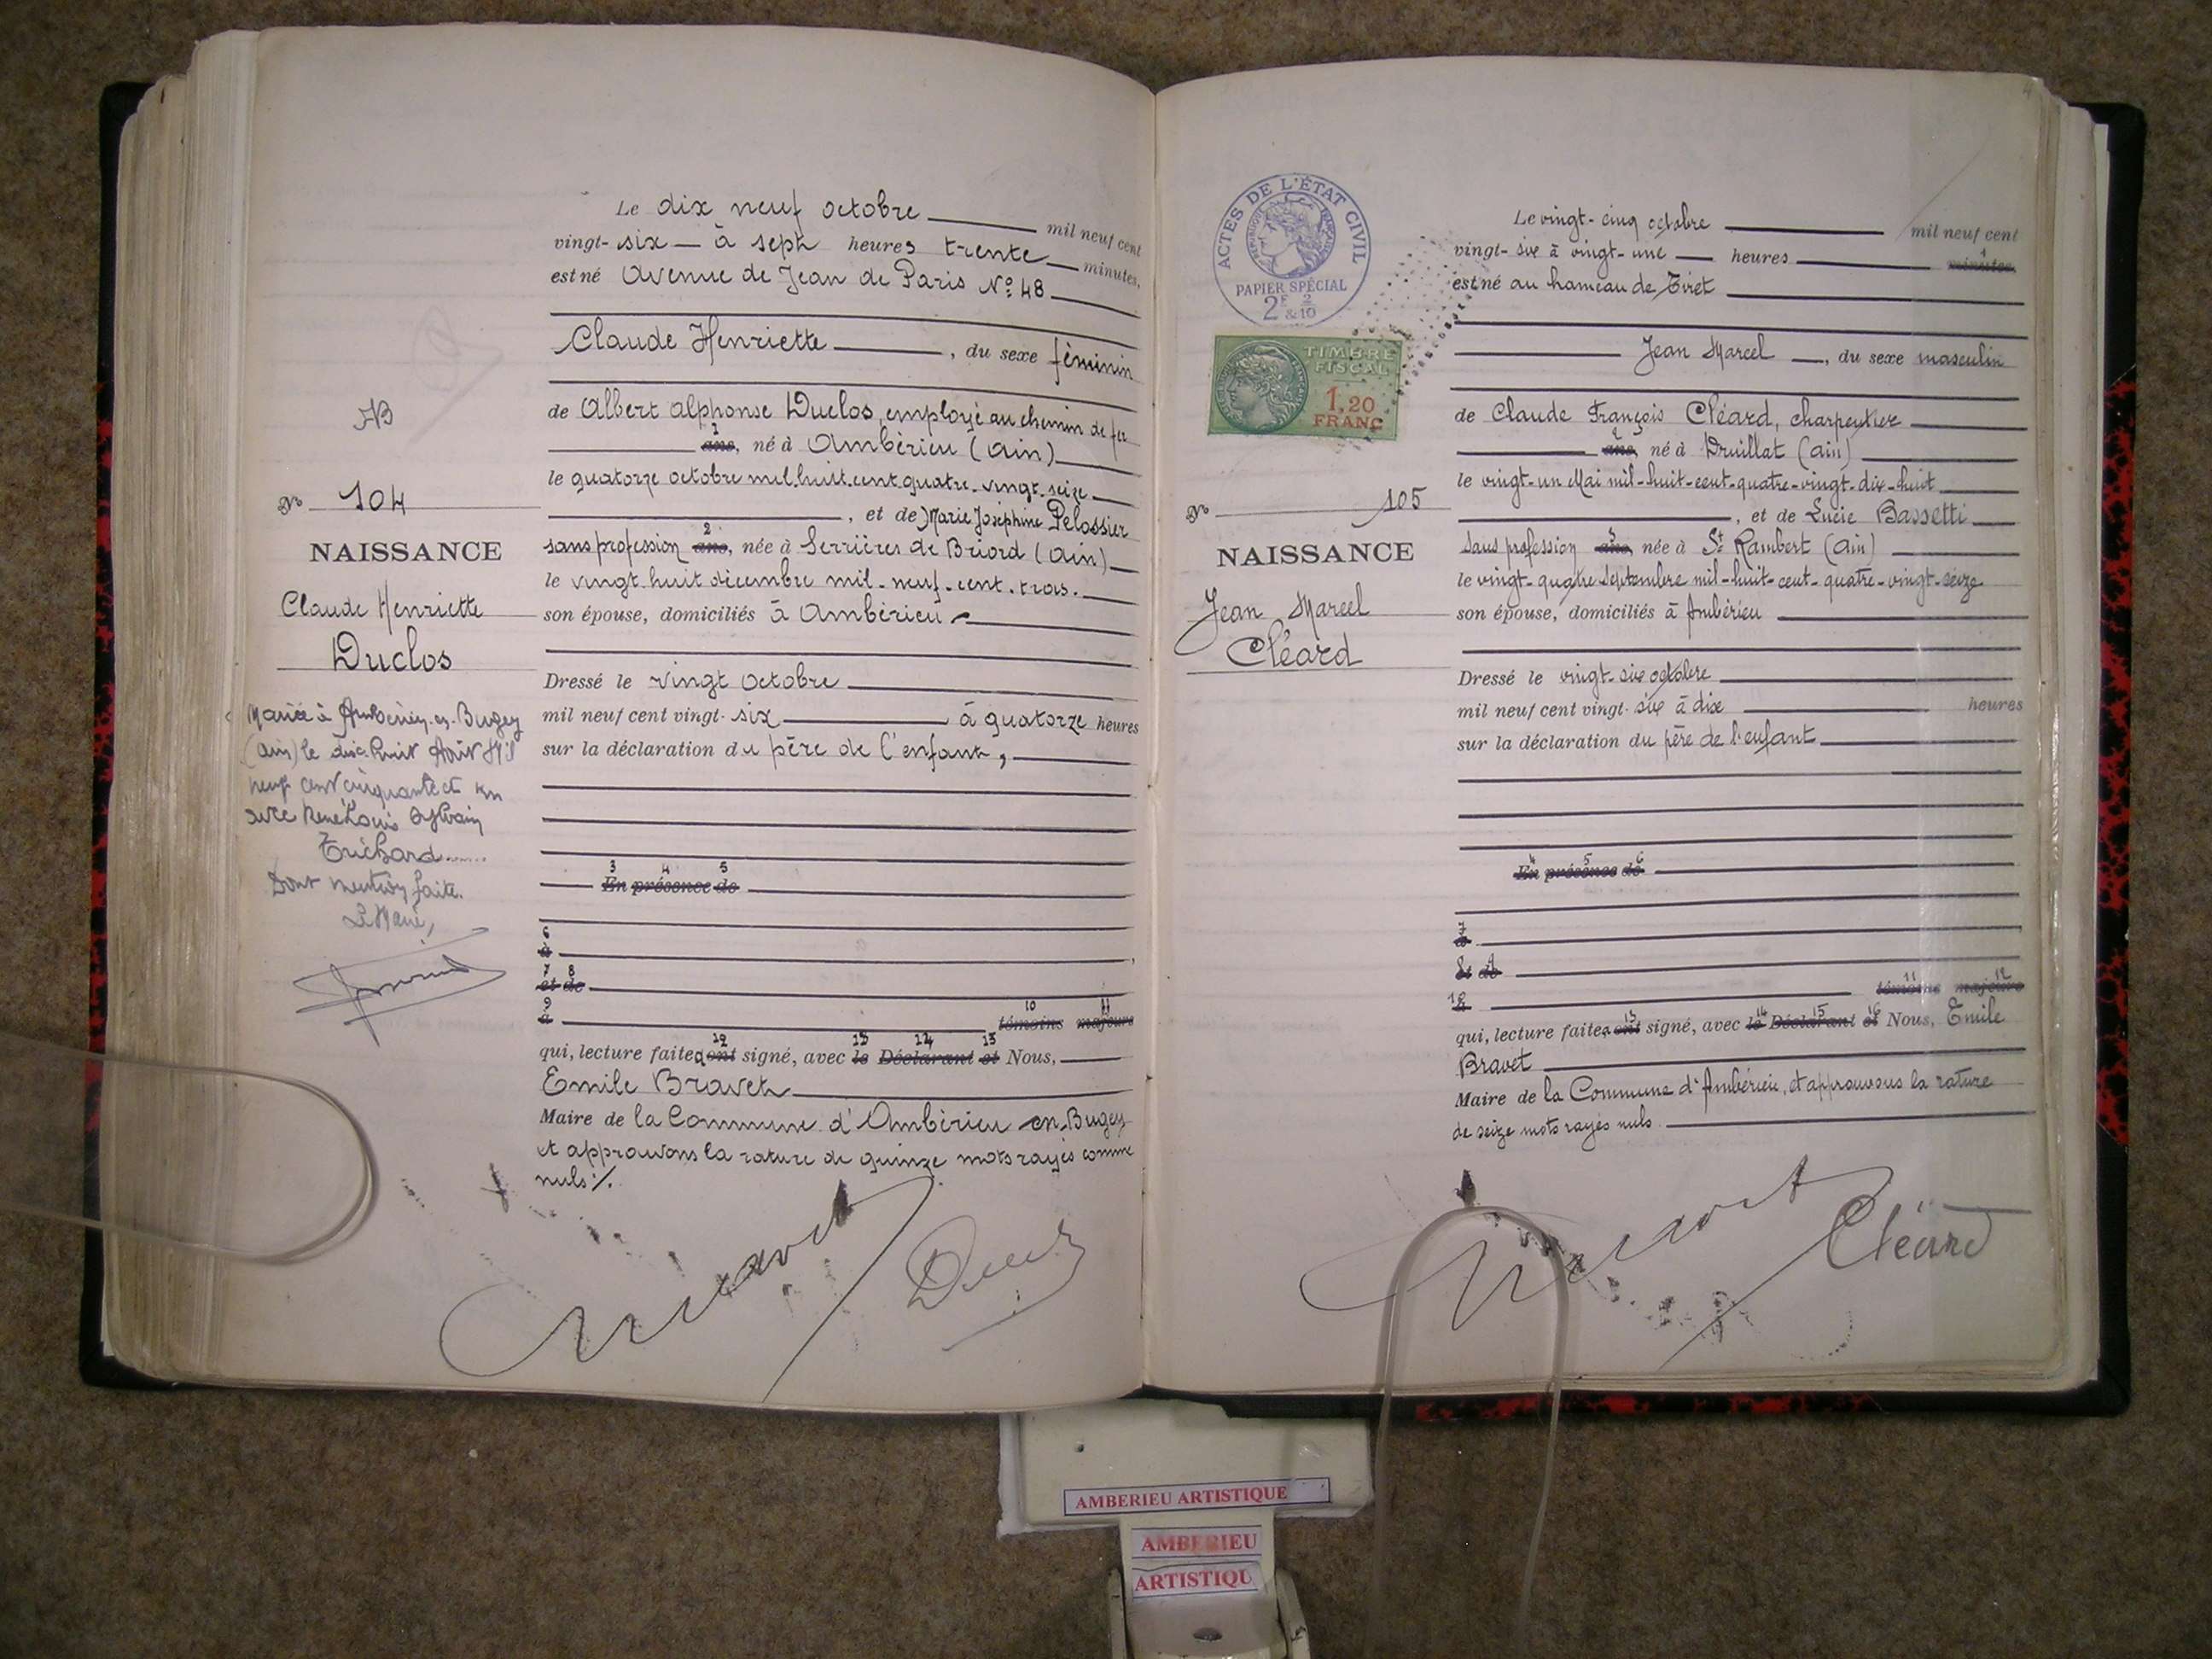 Le dix neuf octobre mil neuf cent
vingt-six à sept heures trente minutes,
est né Avenue de Jean de Paris No 48
Claude Henriette, du sexe féminin
de Albert Alphonse Duclos, employé au chemin de fer
1
ans, né à Ambérieu (Ain)
le quatorze octobre mil huit cent quatre-vingt-seize
, et de Marie Joséphine Pelossier
2
sans profession ans, née à Serrières de Briord (Ain)
le vingt huit décembre mil-neuf-cent-trois.
son épouse, domiciliés à Ambérieu
Dressé le vingt octobre
mil neuf cent vingt-six à quatorze heures
sur la déclaration du père de l'enfant,
3 4 5
En présence de
6
à
7 8
et de
9 10 11
à témoins majeurs
12 13 14 15
qui, lecture faite, ont signé, avec le Déclarant et Nous,
Emile Bravet
Maire de la Commune d'Ambérieu en-Bugey
et approuvons la rature de quinze mots rayés comme
nuls ./.
AB
No 104
NAISSANCE
Claude Henriette
Duclos
Mariée à Ambérieu-en-Bugey
(Ain) le dix-huit Août Mil
neuf cent cinquante et un
avec René Louis Sylvain
Trichard......
Dont mention faite.
Le Maire,
ACTES DE L'ÉTAT CIVIL
RÉPUBLIQUE FRANÇAISE
PAPIER SPÉCIAL
2F & 2/10
TIMBRE
FISCAL
1,20
FRANC
No 105
NAISSANCE
Jean Marcel
Cléard
Le vingt-cinq octobre mil neuf cent
1
vingt-six à vingt-une heures minutes,
est né au hameau de Tiret
Jean Marcel, du sexe masculin
de Claude François Cléard, charpentier
2
ans, né à Druillat (Ain)
le vingt-un Mai mil-huit-cent-quatre-vingt-dix-huit
, et de Lucie Bassetti
3
sans profession ans, née à St Rambert (Ain)
le vingt-quatre Septembre mil-huit-cent-quatre-vingt-seize
son épouse, domiciliés à Ambérieu
Dressé le vingt-six octobre
mil neuf cent vingt-six à dix heures
sur la déclaration du père de l'enfant
4 5 6
En présence de
7
à
8 9
et de
10 11 12
à témoins majeurs
13 14 15 16
qui, lecture faite, ont signé, avec le Déclarant et Nous, Emile
Bravet
Maire de la Commune d'Ambérieu, et approuvons la rature
de seize mots rayés nuls.
Cléard
AMBERIEU ARTISTIQUE
AMBERIEU
ARTISTIQU